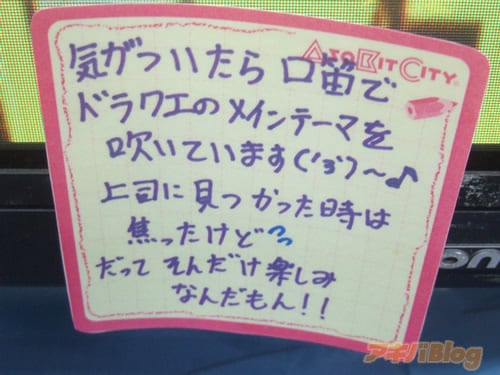 AsoBitCity
気がついたら口笛で
ドラクエのメインテーマを
吹いています('ε')～♪
上司に見つかった時は
焦ったけど
だって そんだけ楽しみ
なんだもん!!
アキバBlog